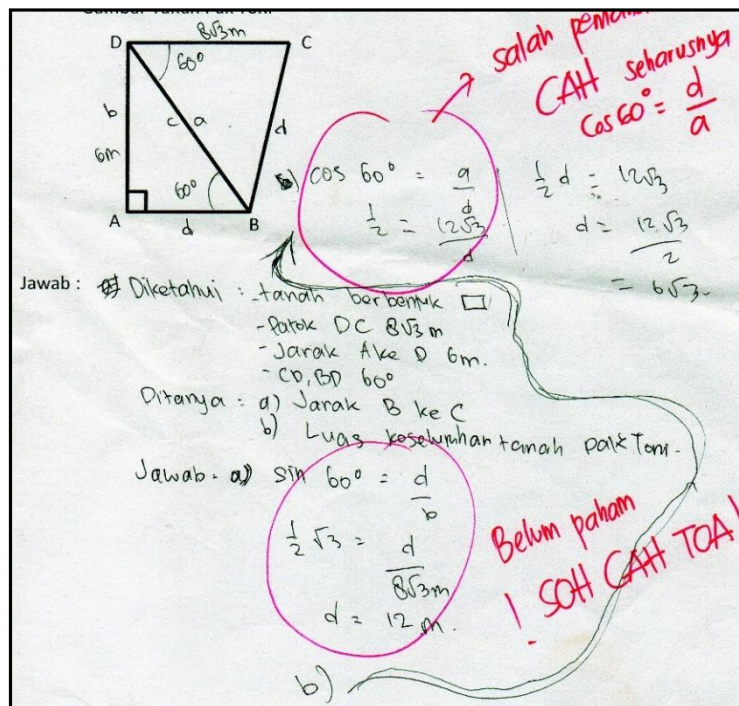 8√3m
D C
60°
b
c a
d
6m
60°
A B
d
salah
CAH seharusnya
Cos 60° = d/a
cos 60° = a/d
1/2 = 12√3/d
1/2 d = 12√3
d = 12√3/2
= 6√3.
Jawab : Diketahui : tanah berbentuk □
- Patok DC 8√3 m
- Jarak A ke D 6m.
- CD, BD 60°
Ditanya : a) Jarak B ke C
b) Luas keseluruhan tanah pak Toni.
Jawab : a) sin 60° = d/b
1/2 √3 = d/8√3m
d = 12 m.
Belum paham
! SOH CAH TOA !
b)